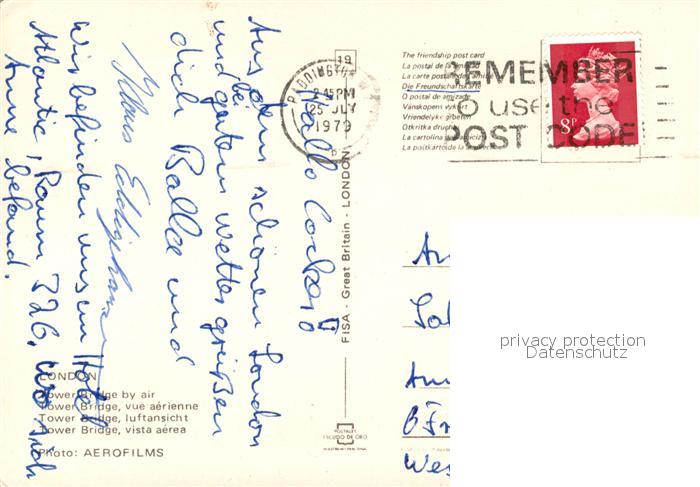 Hallo Corker!
Aus dem schönen London
und bei gutem Wetter grüßen
dich Balleo und
Klaus
Wir befinden uns im Hotel
Atlantic, Raum 326, wo sich
Anne befand.
LONDON
Tower Bridge by air
Tower Bridge, vue aérienne
Tower Bridge, luftansicht
Tower Bridge, vista aérea
Photo: AEROFILMS
FISA - Great Britain - LONDON
POSTALES
ESCUDO DE ORO
PADDINGTON
2-45PM
25 JLY
1979
The friendship post card
La postal de la
La carte postale de
Die Freundschaftskarte
O postal de amizade
Vänskapens vykort
Vriendelyke groeten
Otkritka druzhby
La cartolina
La postkarto de la
REMEMBER
to use the
POST CODE
8P
An
Am
6 Fr
Wes
privacy protection
Datenschutz